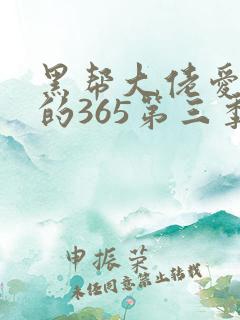 黑帮大佬爱
的365第三季
申振荣
未任同意禁止转载